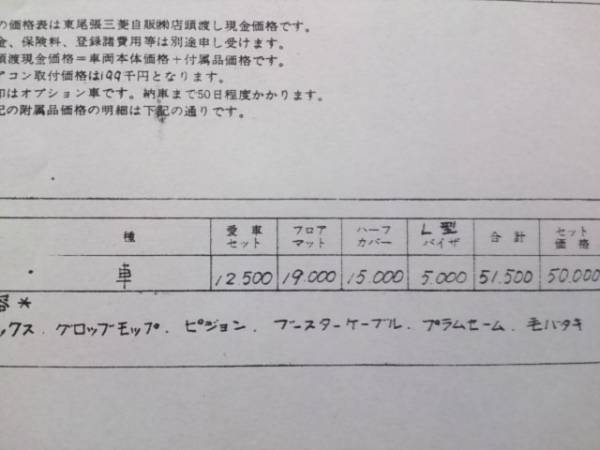 の価格表は東尾張三菱自販㈱店頭渡し現金価格です。
金、保険料、登録諸費用等は別途申し受けます。
頭渡現金価格=車両本体価格+付属品価格です。
アコン取付価格は199千円となります。
印はオプション車です。納車まで50日程度かかります。
記の附属品価格の明細は下記の通りです。
種 愛車セット フロアマット ハーフカバー L型バイザ 合計 セット価格
車 12.500 19.000 15.000 5.000 51.500 50.000
容*
ックス. グロップモップ. ピジョン. ブースターケーブル. プラムセーム. 毛バタキ